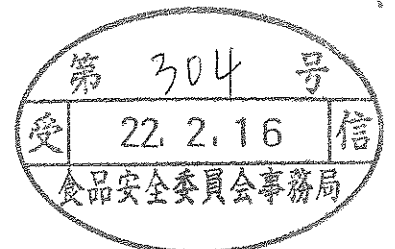 第 304 号
受 22.2.16 信
食品安全委員会事務局